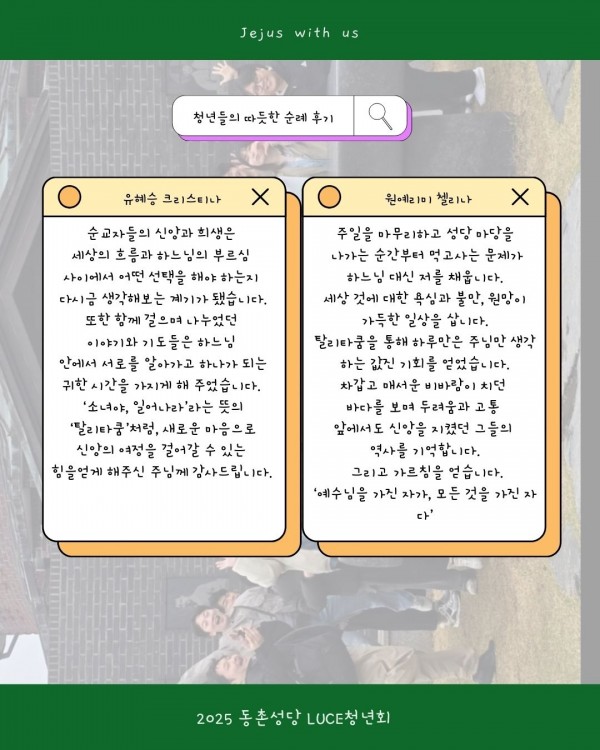 Jejus with us
청년들의 따듯한 순례 후기
유혜승 크리스티나
순교자들의 신앙과 희생은
세상의 흐름과 하느님의 부르심
사이에서 어떤 선택을 해야 하는지
다시금 생각해보는 계기가 됐습니다.
또한 함께 걸으며 나누었던
이야기와 기도들은 하느님
안에서 서로를 알아가고 하나가 되는
귀한 시간을 가지게 해 주었습니다.
‘소녀야, 일어나라’라는 뜻의
‘탈리타쿰’처럼, 새로운 마음으로
신앙의 여정을 걸어갈 수 있는
힘을얻게 해주신 주님께 감사드립니다.
원예리미 첼리나
주일을 마무리하고 성당 마당을
나가는 순간부터 먹고사는 문제가
하느님 대신 저를 채웁니다.
세상 것에 대한 욕심과 불만, 원망이
가득한 일상을 삽니다.
탈리타쿰을 통해 하루만은 주님만 생각
하는 값진 기회를 얻었습니다.
차갑고 매서운 비바람이 치던
바다를 보며 두려움과 고통
앞에서도 신앙을 지켰던 그들의
역사를 기억합니다.
그리고 가르침을 얻습니다.
‘예수님을 가진 자가, 모든 것을 가진 자
다’
2025 동촌성당 LUCE청년회